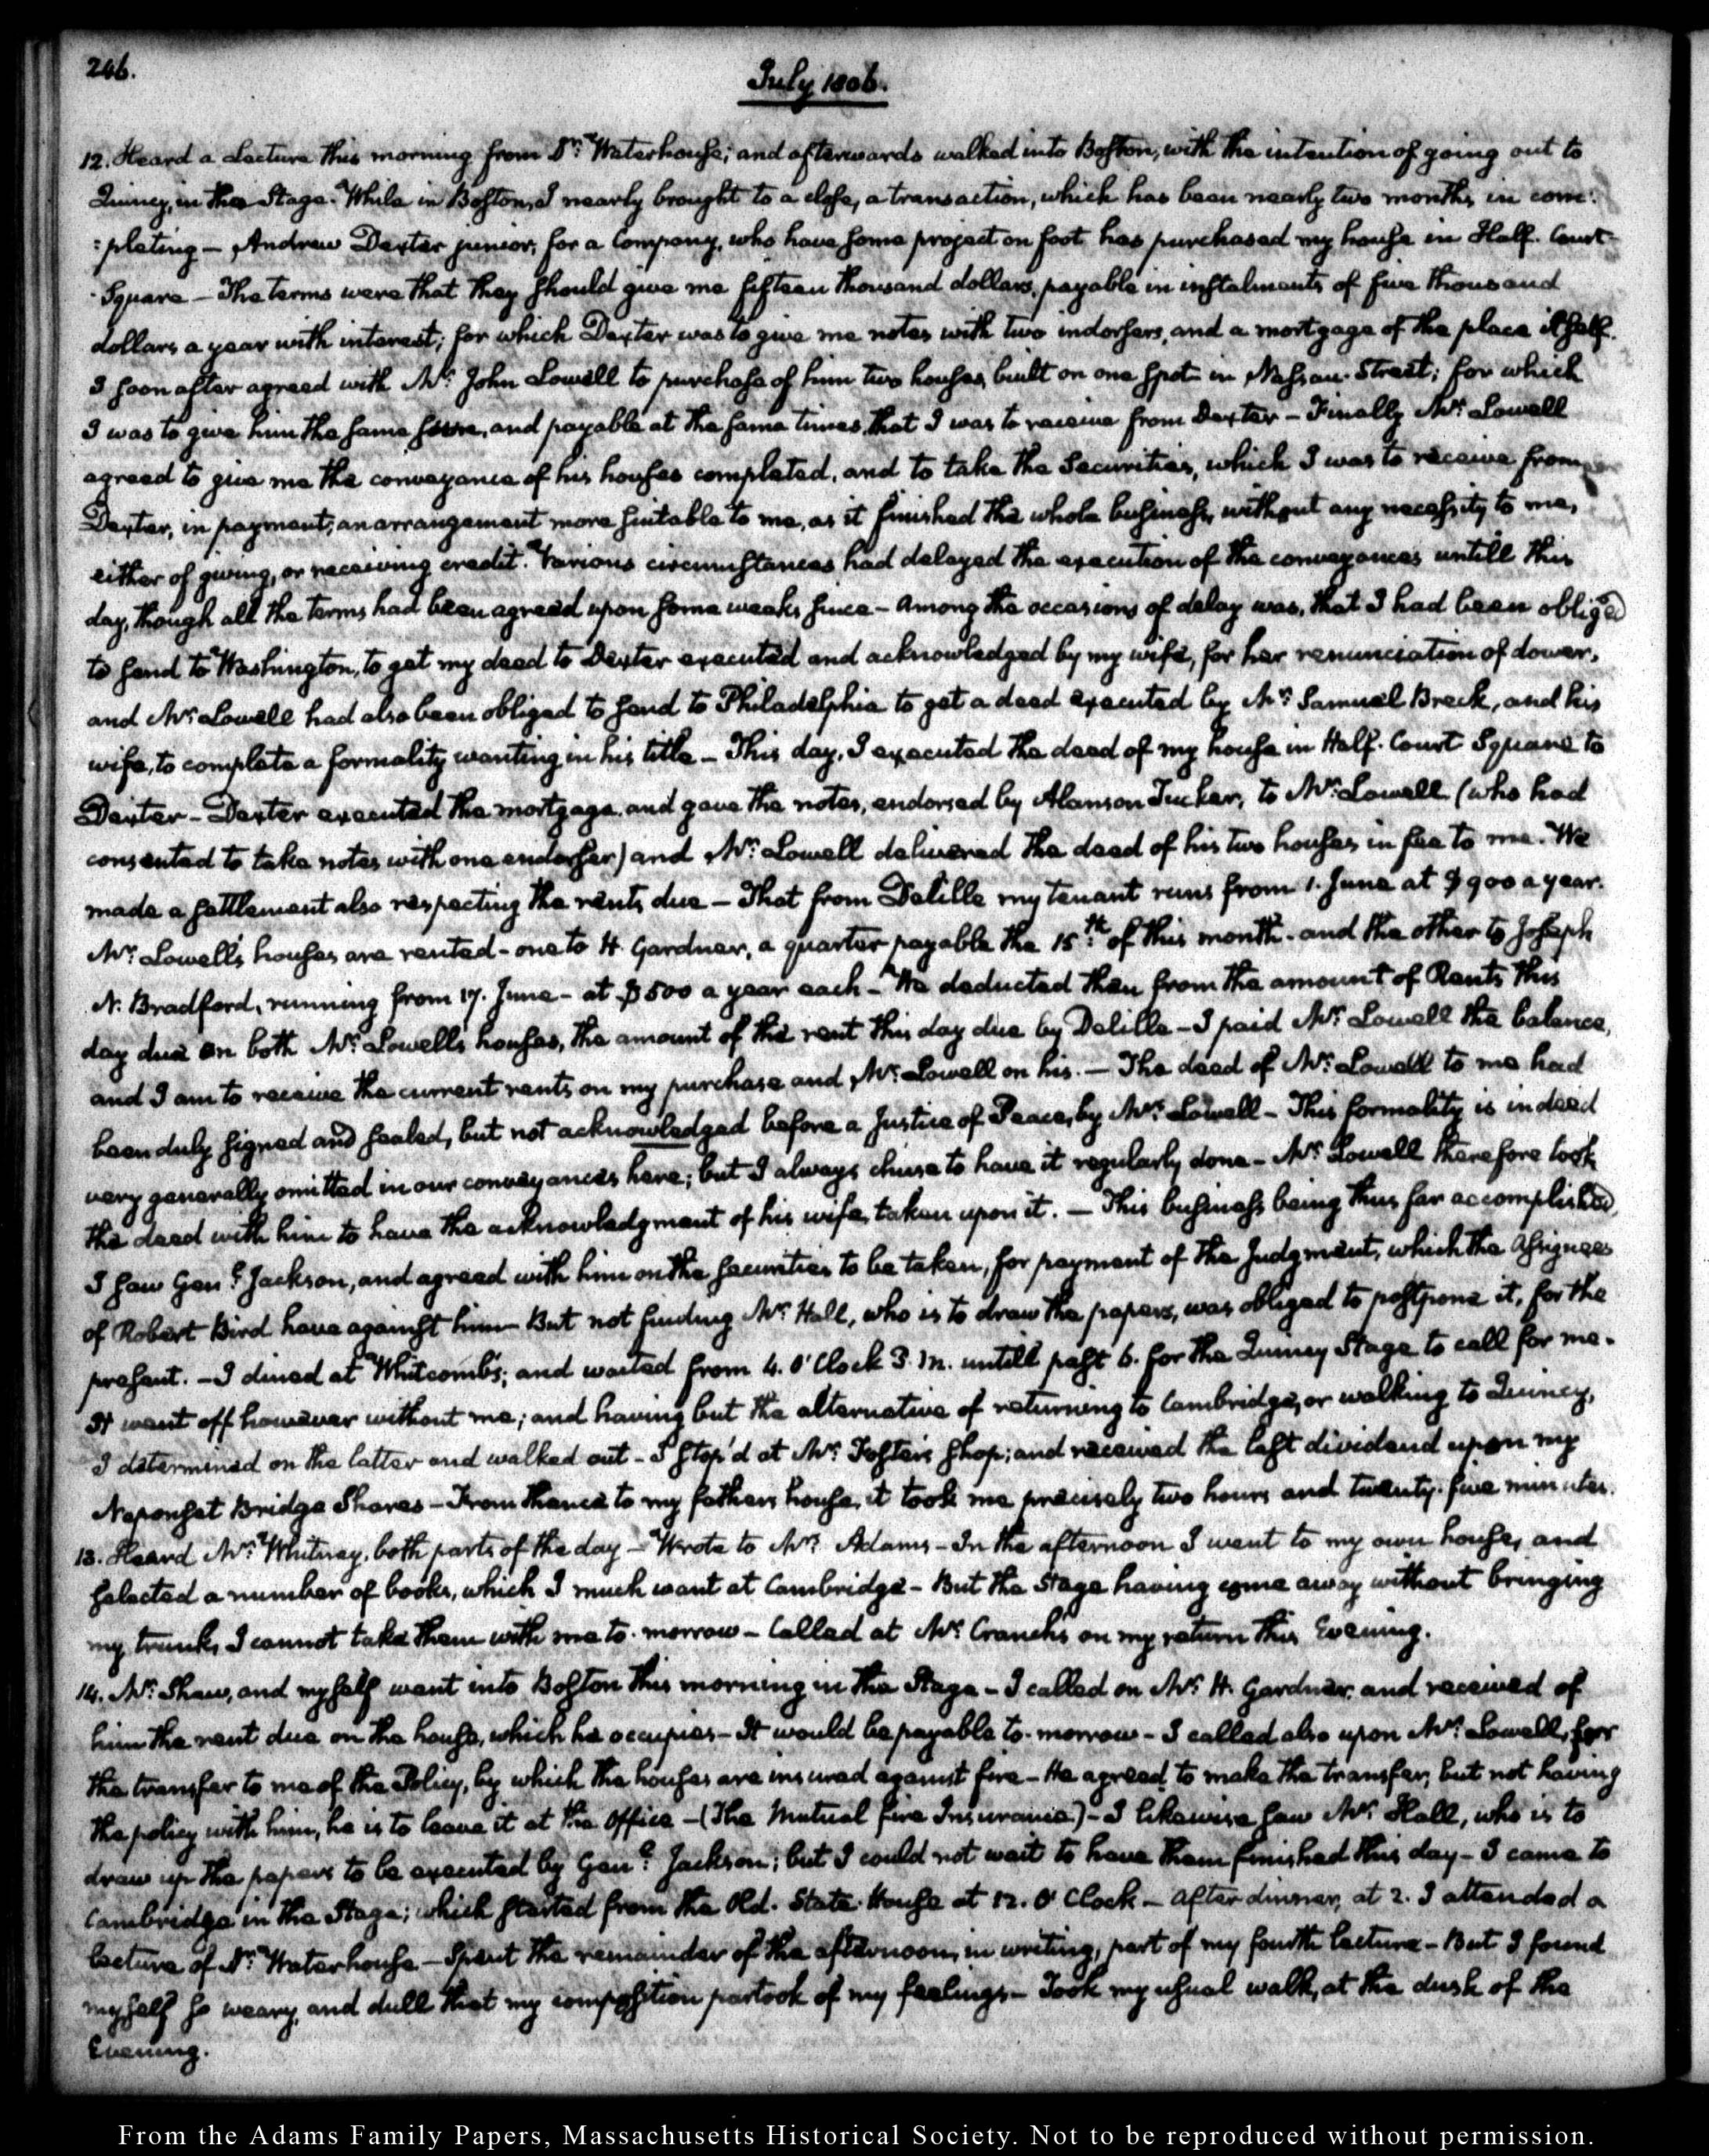 246.
July 1806.
12. Heard a Lecture this morning from Dr. Waterhouse; and afterwards walked into Boston, with the intention of going out to
Quincy, in the Stage. While in Boston, I nearly brought to a close, a transaction, which has been nearly two months in com:
:pleting — Andrew Dexter junior, for a Company, who have some project on foot has purchased my house in Half-Court-
-Square — The terms were that they should give me fifteen thousand dollars, payable in instalments of five thousand
dollars a year with interest; for which Dexter was to give me notes with two indorsers, and a mortgage of the place itself.
I soon after agreed with Mr. John Lowell to purchase of him two houses, built on one spot in Nassau-Street; for which
I was to give him the same sum, and payable at the same times, that I was to receive from Dexter — Finally Mr. Lowell
agreed to give me the conveyance of his houses completed, and to take the Securities, which I was to receive from
Dexter, in payment; an arrangement more suitable to me, as it finished the whole business, without any necessity to me,
either of giving, or receiving credit. Various circumstances had delayed the execution of the conveyances untill this
day, though all the terms had been agreed upon some weeks since — Among the occasions of delay was, that I had been obliged
to send to Washington, to get my deed to Dexter executed and acknowledged by my wife, for her renunciation of dower,
and Mr. Lowell had also been obliged to send to Philadelphia to get a deed executed by Mr. Samuel Breck, and his
wife, to complete a formality wanting in his title — This day, I executed the deed of my house in Half-Court Square to
Dexter — Dexter executed the mortgage, and gave the notes, endorsed by Alanson Tucker, to Mr. Lowell (who had
consented to take notes with one endorser) and Mr. Lowell delivered the deed of his two houses in fee to me. We
made a settlement also respecting the rents due — That from Delille my tenant runs from 1. June at $900 a year.
Mr. Lowell's houses are rented — one to H. Gardner, a quarter payable the 15th. of this month — and the other to Joseph
N. Bradford, running from 17. June — at $500 a year each — We deducted then from the amount of Rents this
day due on both Mr. Lowell's houses, the amount of the rent this day due by Delille — I paid Mr. Lowell the balance,
and I am to receive the current rents on my purchase and Mr. Lowell on his. — The deed of Mr. Lowell to me had
been duly signed and sealed, but not acknowledged before a Justice of Peace, by Mrs. Lowell — This formality is indeed
very generally omitted in our conveyances here; but I always chuse to have it regularly done — Mr. Lowell therefore took
the deed with him to have the acknowledgment of his wife, taken upon it. — This business being thus far accomplished,
I saw Genl. Jackson, and agreed with him on the securities to be taken, for payment of the Judgment, which the Assignees
of Robert Bird have against him — But not finding Mr. Hall, who is to draw the papers, was obliged to postpone it, for the
present. — I dined at Whitcomb's; and waited from 4. O'Clock P.M. untill past 6. for the Quincy Stage to call for me.
It went off however without me; and having but the alternative of returning to Cambridge, or walking to Quincy,
I determined on the latter and walked out — I stop'd at Mr. Foster's shop; and received the last dividend upon my
Neponset Bridge Shares — From thence to my father's house, it took me precisely two hours and twenty-five minutes.
13. Heard Mr. Whitney, both parts of the day — Wrote to Mrs. Adams — In the afternoon I went to my own house, and
selected a number of books, which I much want at Cambridge — But the Stage having come away without bringing
my trunk, I cannot take them with me to-morrow — Called at Mr. Cranch's on my return this Evening.
14. Mr. Shaw, and myself went into Boston this morning in the Stage — I called on Mr. H. Gardner, and received of
him the rent due on the house, which he occupies — It would be payable to-morrow — I called also upon Mr. Lowell, for
the transfer to me of the Policy, by which the houses are insured against fire — He agreed to make the transfer, but not having
the policy with him, he is to leave it at the Office — (The Mutual fire Insurance) — I likewise saw Mr. Hall, who is to
draw up the papers to be executed by Genl. Jackson; but I could not wait to have them finished this day — I came to
Cambridge in the Stage; which started from the Old-State-House at 12. O'Clock — After dinner, at 2. I attended a
lecture of Dr. Waterhouse — Spent the remainder of the afternoon, in writing, part of my fourth lecture — But I found
myself so weary, and dull that my composition partook of my feelings — Took my usual walk, at the dusk of the
Evening.
From the Adams Family Papers, Massachusetts Historical Society. Not to be reproduced without permission.